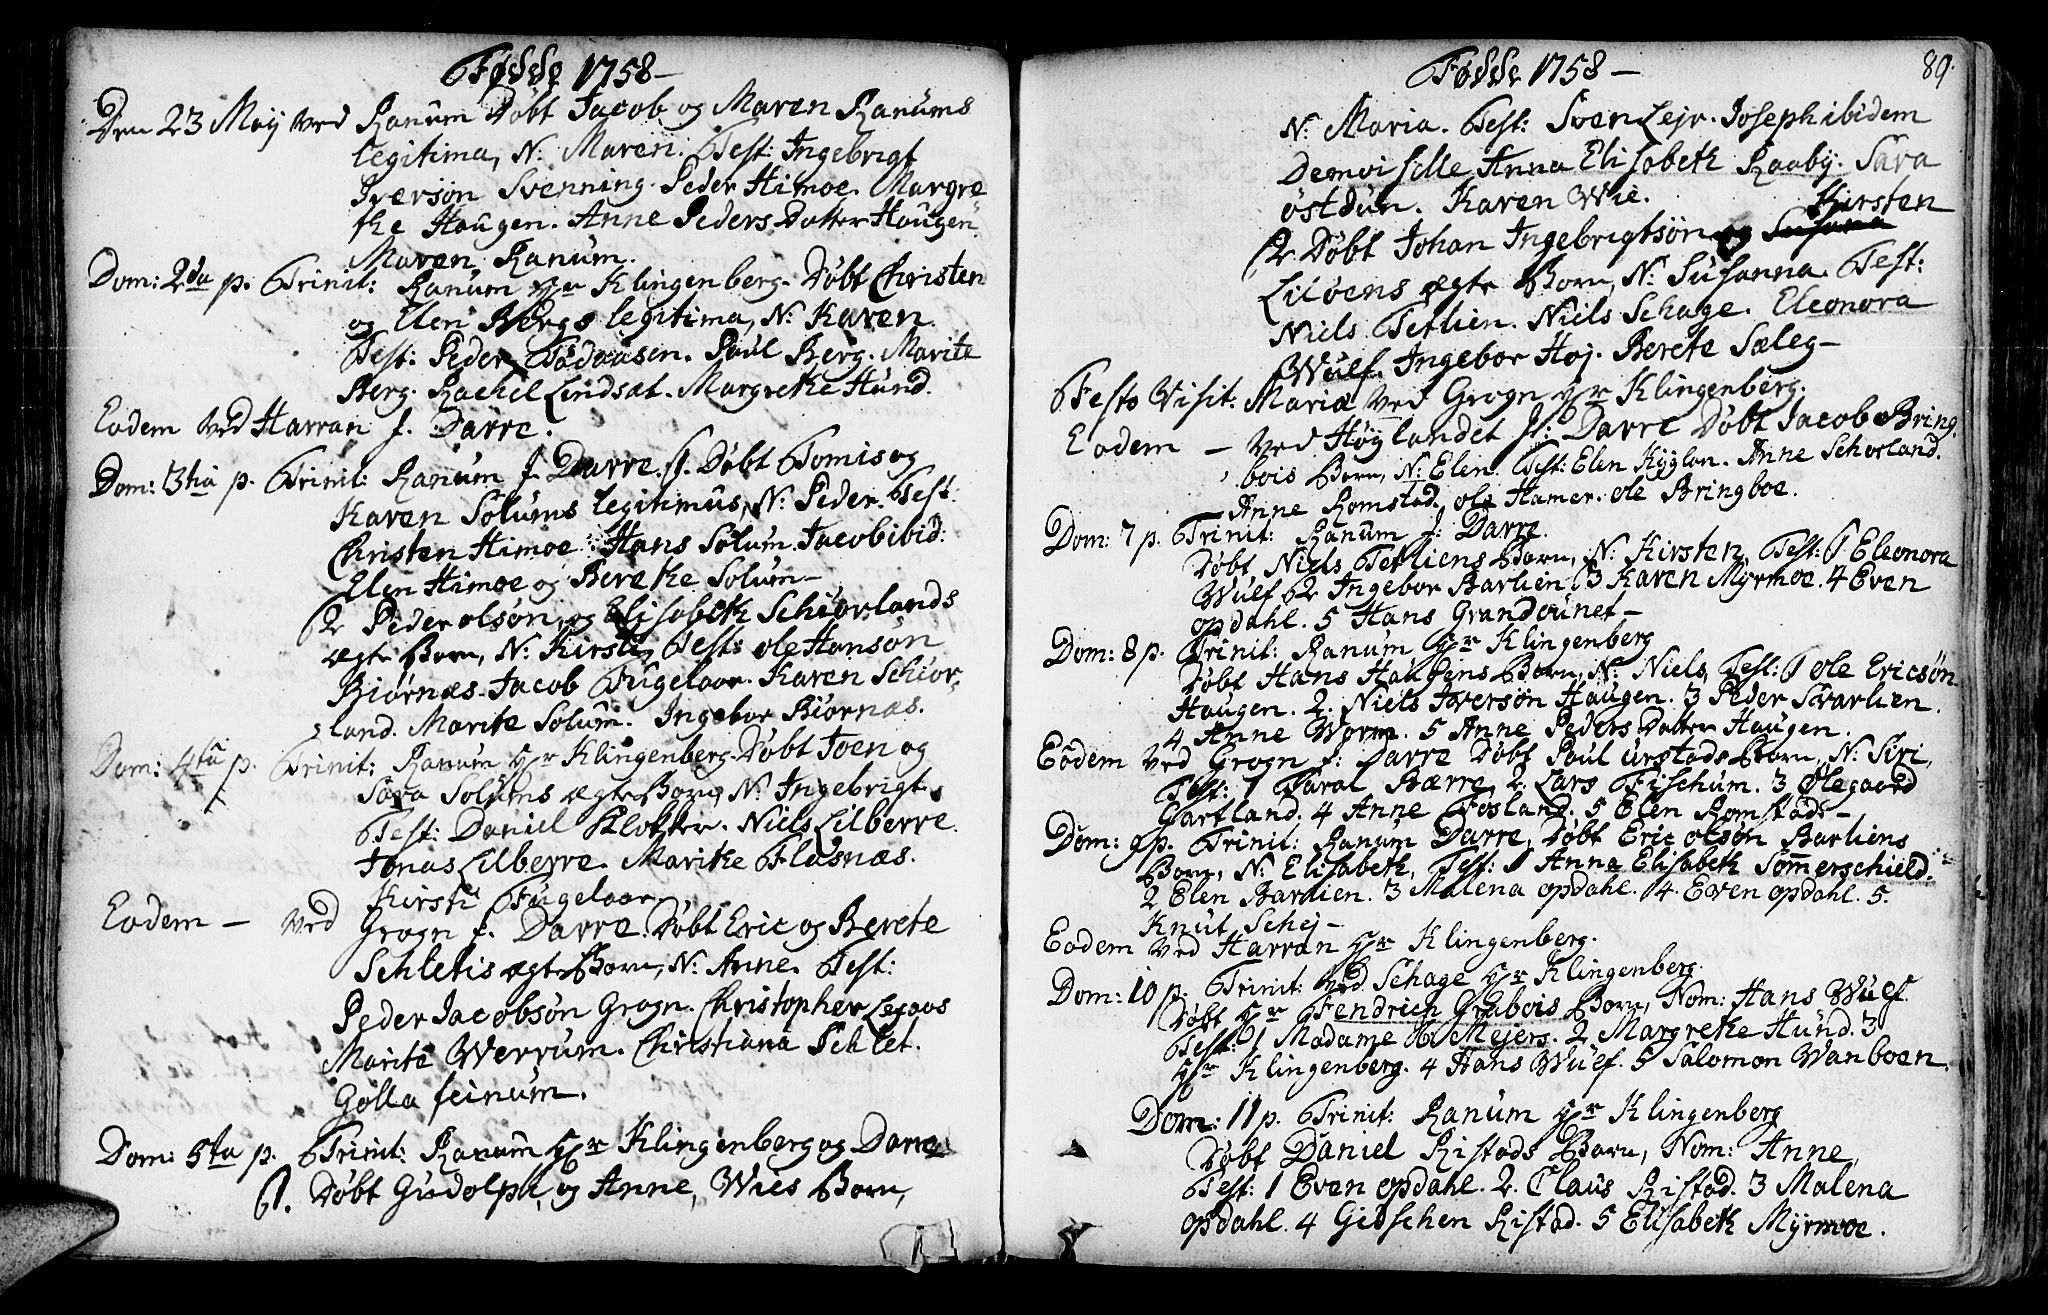 Fødde 1758 –
Den 23 Maij ved Ranum Døbt Jacob og Maren Ranums
legitima, N: Maren. Test: Ingebrigt
Iversøn Svenning. Peder Himoe. Margre
the Haugen. Anne Peders Datter Haugen
Maren Ranum.
Dom: 2da p. Trinit: Ranum Hr Klingenberg. Døbt Christen
og Elen Bergs legitima, N: Karen.
Test: Peder Paul Berg. Marite
Berg. Rachel Lindsæt. Margrethe Hund.
Eodem ved Harran J. Darre.
Dom: 3tia p. Trinit: Ranum J. Darre. 1. Døbt Tomis og
Karen Solums legitimus, N: Peder. Test:
Christen Himoe. Hans Solum. Jacob ibid:
Elen Himoe og Berethe Solum –
2 Peder olsøn, og Elisabeth Schiorlands
ægte Barn, N: Kirsti, Test: ole Hansøn
Biørnæs. Jacob Fugelaar. Karen Schior-
land. Marite Solum. Ingebor Biørnæs.
Dom: 4ta p. Trinit: Ranum Hr Klingenberg. Døbt Joen og
Sara Solums ægte Barn, N: Ingebrigt.
Test: Daniel Klokker. Niels Lilberre.
Jonas Lilberre. Marithe Flasnæs.
Kirsti Fugelaar
Eodem – ved Grogn J. Darre. Døbt Eric og Berete
Schletis ægte Barn, N: Anne. Test:
Peder Jacobsøn Grogn. Christopher
Marite Werrum. Christiana Schlet.
Golla feinum.
Dom: 5ta p. Trinit: Ranum Hr Klingenberg og Darre
1. Døbt Gudolph, og Anne, Wies Barn,
Fødde 1758 –
89.
N: Maria. Test: Sven Lejr. Joseph ibidem
Demoiselle Anna Elisabeth Raaby. Sara
østdun. Karen Wie.
Kirsten
2 Døbt Johan Ingebrigtsøn og Susanna
Liløens ægte Barn, N: Susanna. Test:
Niels Tetlien. Niels Schage. Eleonora
Wulf. Ingebor Høj. Berete Sæleg –
Festo Visit: Mariæ ved Grogn Hr Klingenberg.
Eodem – ved Høylandet J: Darre Døbt Jacob Bring
bois Barn, N: Elen. Test: Elen Anne Schorland.
Anne Romstad. ole Hamer. ole Bringboe.
Dom: 7 p. Trinit: Ranum J: Darre.
Døbt Niels Tetliens Barn, N: Kirsten, Test: 1 Eleonora
Wulf 2 Ingebor Barlien 3 Karen Myrmoe. 4 Even
opdahl. 5 Hans Grandounet –
Dom: 8 p. Trinit: Ranum Hr Klingenberg
Døbt Hans Haugens Barn, N: Niels, Test: 1 ole Ericsøn
Haugen. 2. Niels Iversøn Haugen. 3 Peder Svarlien.
4 Anne Worm. 5 Anne Peders Datter Haugen.
Eodem ved Grogn J. Darre Døbt Paul urstads Barn, N: Siri,
Test: 1 Taral Bærre, 2. Lars Fischum. 3 Olegaard
Gartland. 4 Anne Fosland. 5 Elen Romstad –
Dom: 9 p. Trinit: Ranum Darre, Døbt Eric olsøn Barliens
Barn, N: Elisabeth, Test: 1 Anna Elisabeth Sommerschield.
2 Elen Barlien. 3 Malena opdahl. 4. Even opdahl. 5.
Knut Schej –
Eodem ved Harran Hr Klingenberg.
Dom: 10 p. Trinit: ved Schage Hr Klingenberg.
Døbt Hr Fendrich Grabois Barn, Nom: Hans Wulf
Test: 1 Madame Mejers. 2 Margrethe Hund. 3
Hr Klingenberg. 4 Hans Wulf. 5 Salomon Wanboen.
Dom: 11 p. Trinit: Ranum Hr Klingenberg
Døbt Daniel Ristads Barn, Nom: Anne,
Test: 1 Even opdahl. 2. Claus Ristad. 3 Malena
opdahl. 4 Gidschen Ristad. 5 Elisabeth Myrmoe.